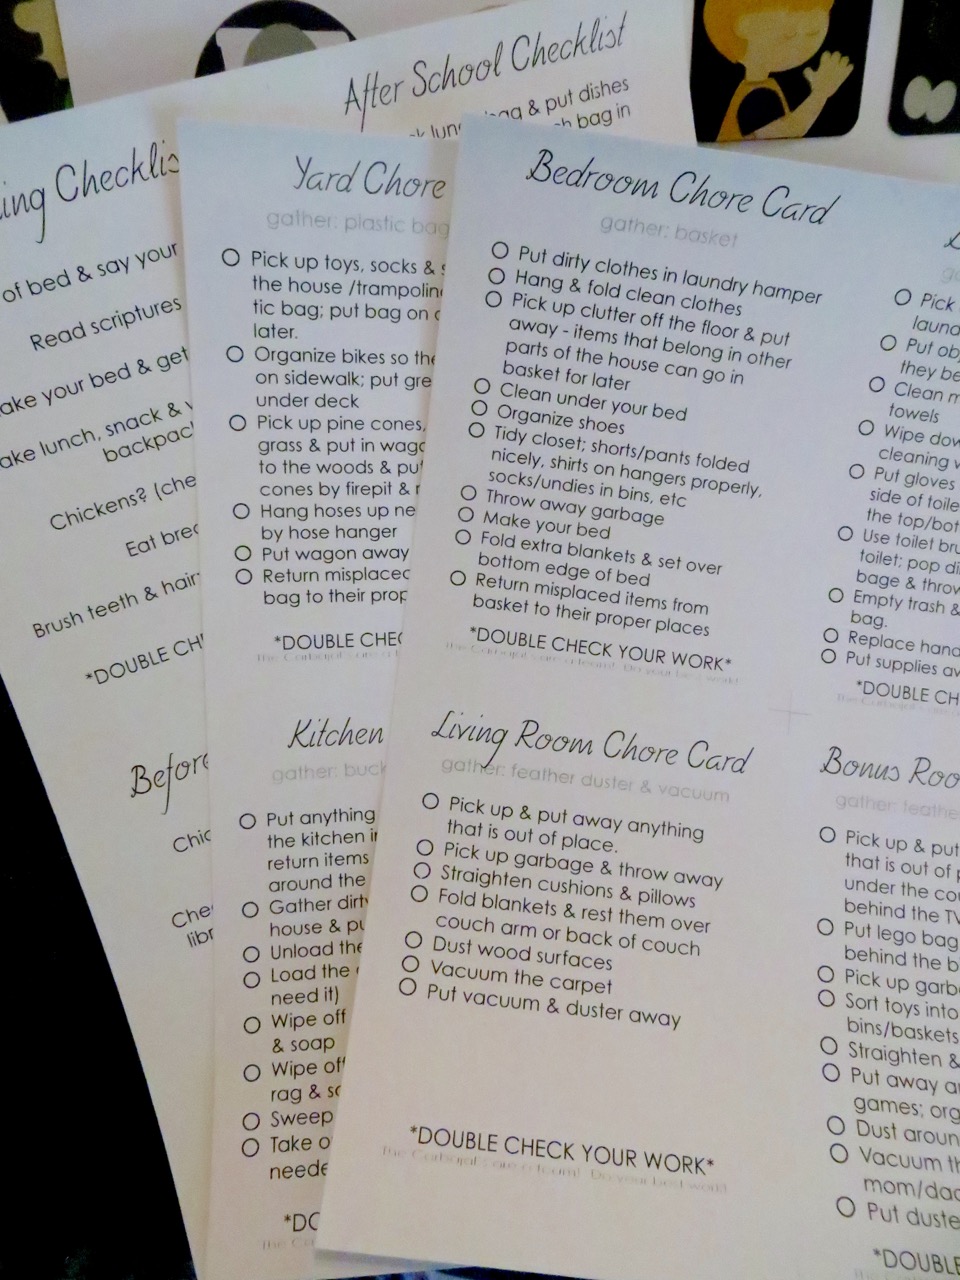 After School Checklist
bag & put dishes
bag in
Checklis
of bed & say your
Read scriptures
ake your bed & get
ake lunch, snack &
backpac
Chickens? (che
Eat brea
Brush teeth & hair
*DOUBLE CH
Before
Chic
Che
libr
Yard Chore
gather: plastic bag
Pick up toys, socks &
the house /trampolin
tic bag; put bag on
later.
Organize bikes so the
on sidewalk; put gre
under deck
Pick up pine cones,
grass & put in wago
to the woods & pu
cones by firepit &
Hang hoses up ne
by hose hanger
Put wagon away
Return misplaced
bag to their prop
*DOUBLE CHEC
Kitchen
gather: buck
Put anything
the kitchen
return items
around the
Gather dirty
house & pu
Unload the
Load the
need it)
Wipe off
& soap
Wipe off
rag & so
Sweep
Take o
neede
*DO
Bedroom Chore Card
gather: basket
Put dirty clothes in laundry hamper
Hang & fold clean clothes
Pick up clutter off the floor & put
away - items that belong in other
parts of the house can go in
basket for later
Clean under your bed
Organize shoes
Tidy closet; shorts/pants folded
nicely, shirts on hangers properly,
socks/undies in bins, etc
Throw away garbage
Make your bed
Fold extra blankets & set over
bottom edge of bed
Return misplaced items from
basket to their proper places
*DOUBLE CHECK YOUR WORK*
Living Room Chore Card
gather: feather duster & vacuum
Pick up & put away anything
that is out of place.
Pick up garbage & throw away
Straighten cushions & pillows
Fold blankets & rest them over
couch arm or back of couch
Dust wood surfaces
Vacuum the carpet
Put vacuum & duster away
*DOUBLE CHECK YOUR WORK*
The Carbajal's are a team! Do your best work!
Pick
laund
Put ob
they be
Clean m
towels
Wipe dow
cleaning
Put gloves
side of toile
the top/bot
Use toilet bru
toilet; pop di
bage & throw
Empty trash &
bag.
Replace hand
Put supplies aw
*DOUBLE CH
Bonus Roo
gather: feathe
Pick up & put
that is out of
under the cou
behind the TV
Put lego bag
behind the b
Pick up garb
Sort toys into
bins/baskets
Straighten &
Put away a
games; org
Dust aroun
Vacuum th
mom/dad
Put duste
*DOUBLE